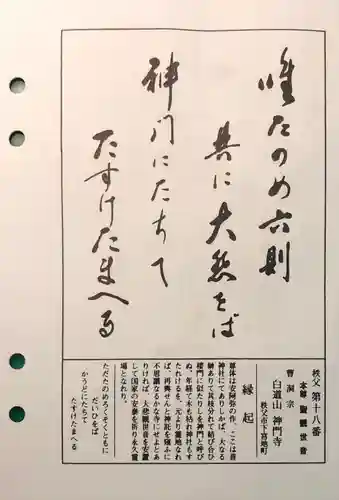 唯たのめ六則
共に大慈をば
神門にたちて
たすけたまへる
秩父 第十八番
本尊 聖観世音
曹洞宗
白道山 神門寺
秩父市下宮地町
縁起
尊体は安阿弥の作、ここは昔
神社にてありしが、大なる
榊ありて其枝分れて結び合ひ
楼門に似たりしを神門と呼び
ぬ、年経て木も枯れ神社もす
たれけるを、元より霊地なれ
ば、再興せんと神託を窺ふに
不思議なるかな寺にせよとあ
りければ、大悲観世音を安置
して国家の安泰を祈り永久霊
場となれり。
ただたのめろくそくともに
だいひをば
かうどにたちて
たすけたまへる